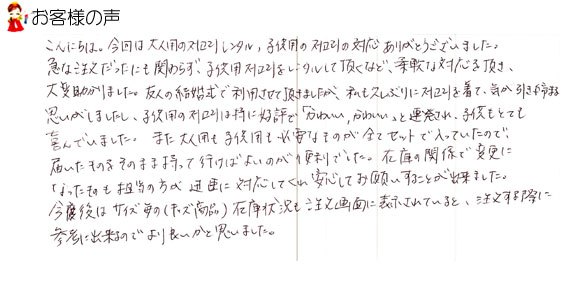 お客様の声
こんにちは。今回は大人用のチマチョゴリレンタル、子供用のチョゴリの対応ありがとうございました。
急な注文だったにも関わらず、子供用チョゴリをレンタルして頂くなど、柔軟な対応を頂き、
大変助かりました。友人の結婚式で利用させて頂きましたが、私も久しぶりにチョゴリを着て、気が引き締まる
思いがしましたし、子供用のチョゴリは特に好評で「かわいい、かわいい」と連発され、子供もとても
喜んでいました。また大人用も子供用も必要なものが全てセットで入っていたので、
届いたものをそのまま持って行けばよいのが便利でした。在庫の関係で変更に
なったものも担当の方が迅速に対応してくれ安心してお願いすることが出来ました。
今度後はサイズ毎の(キッズ商品)在庫状況も注文画面に表示されていると、注文する際に
参考に出来るのでより良いかと思いました。